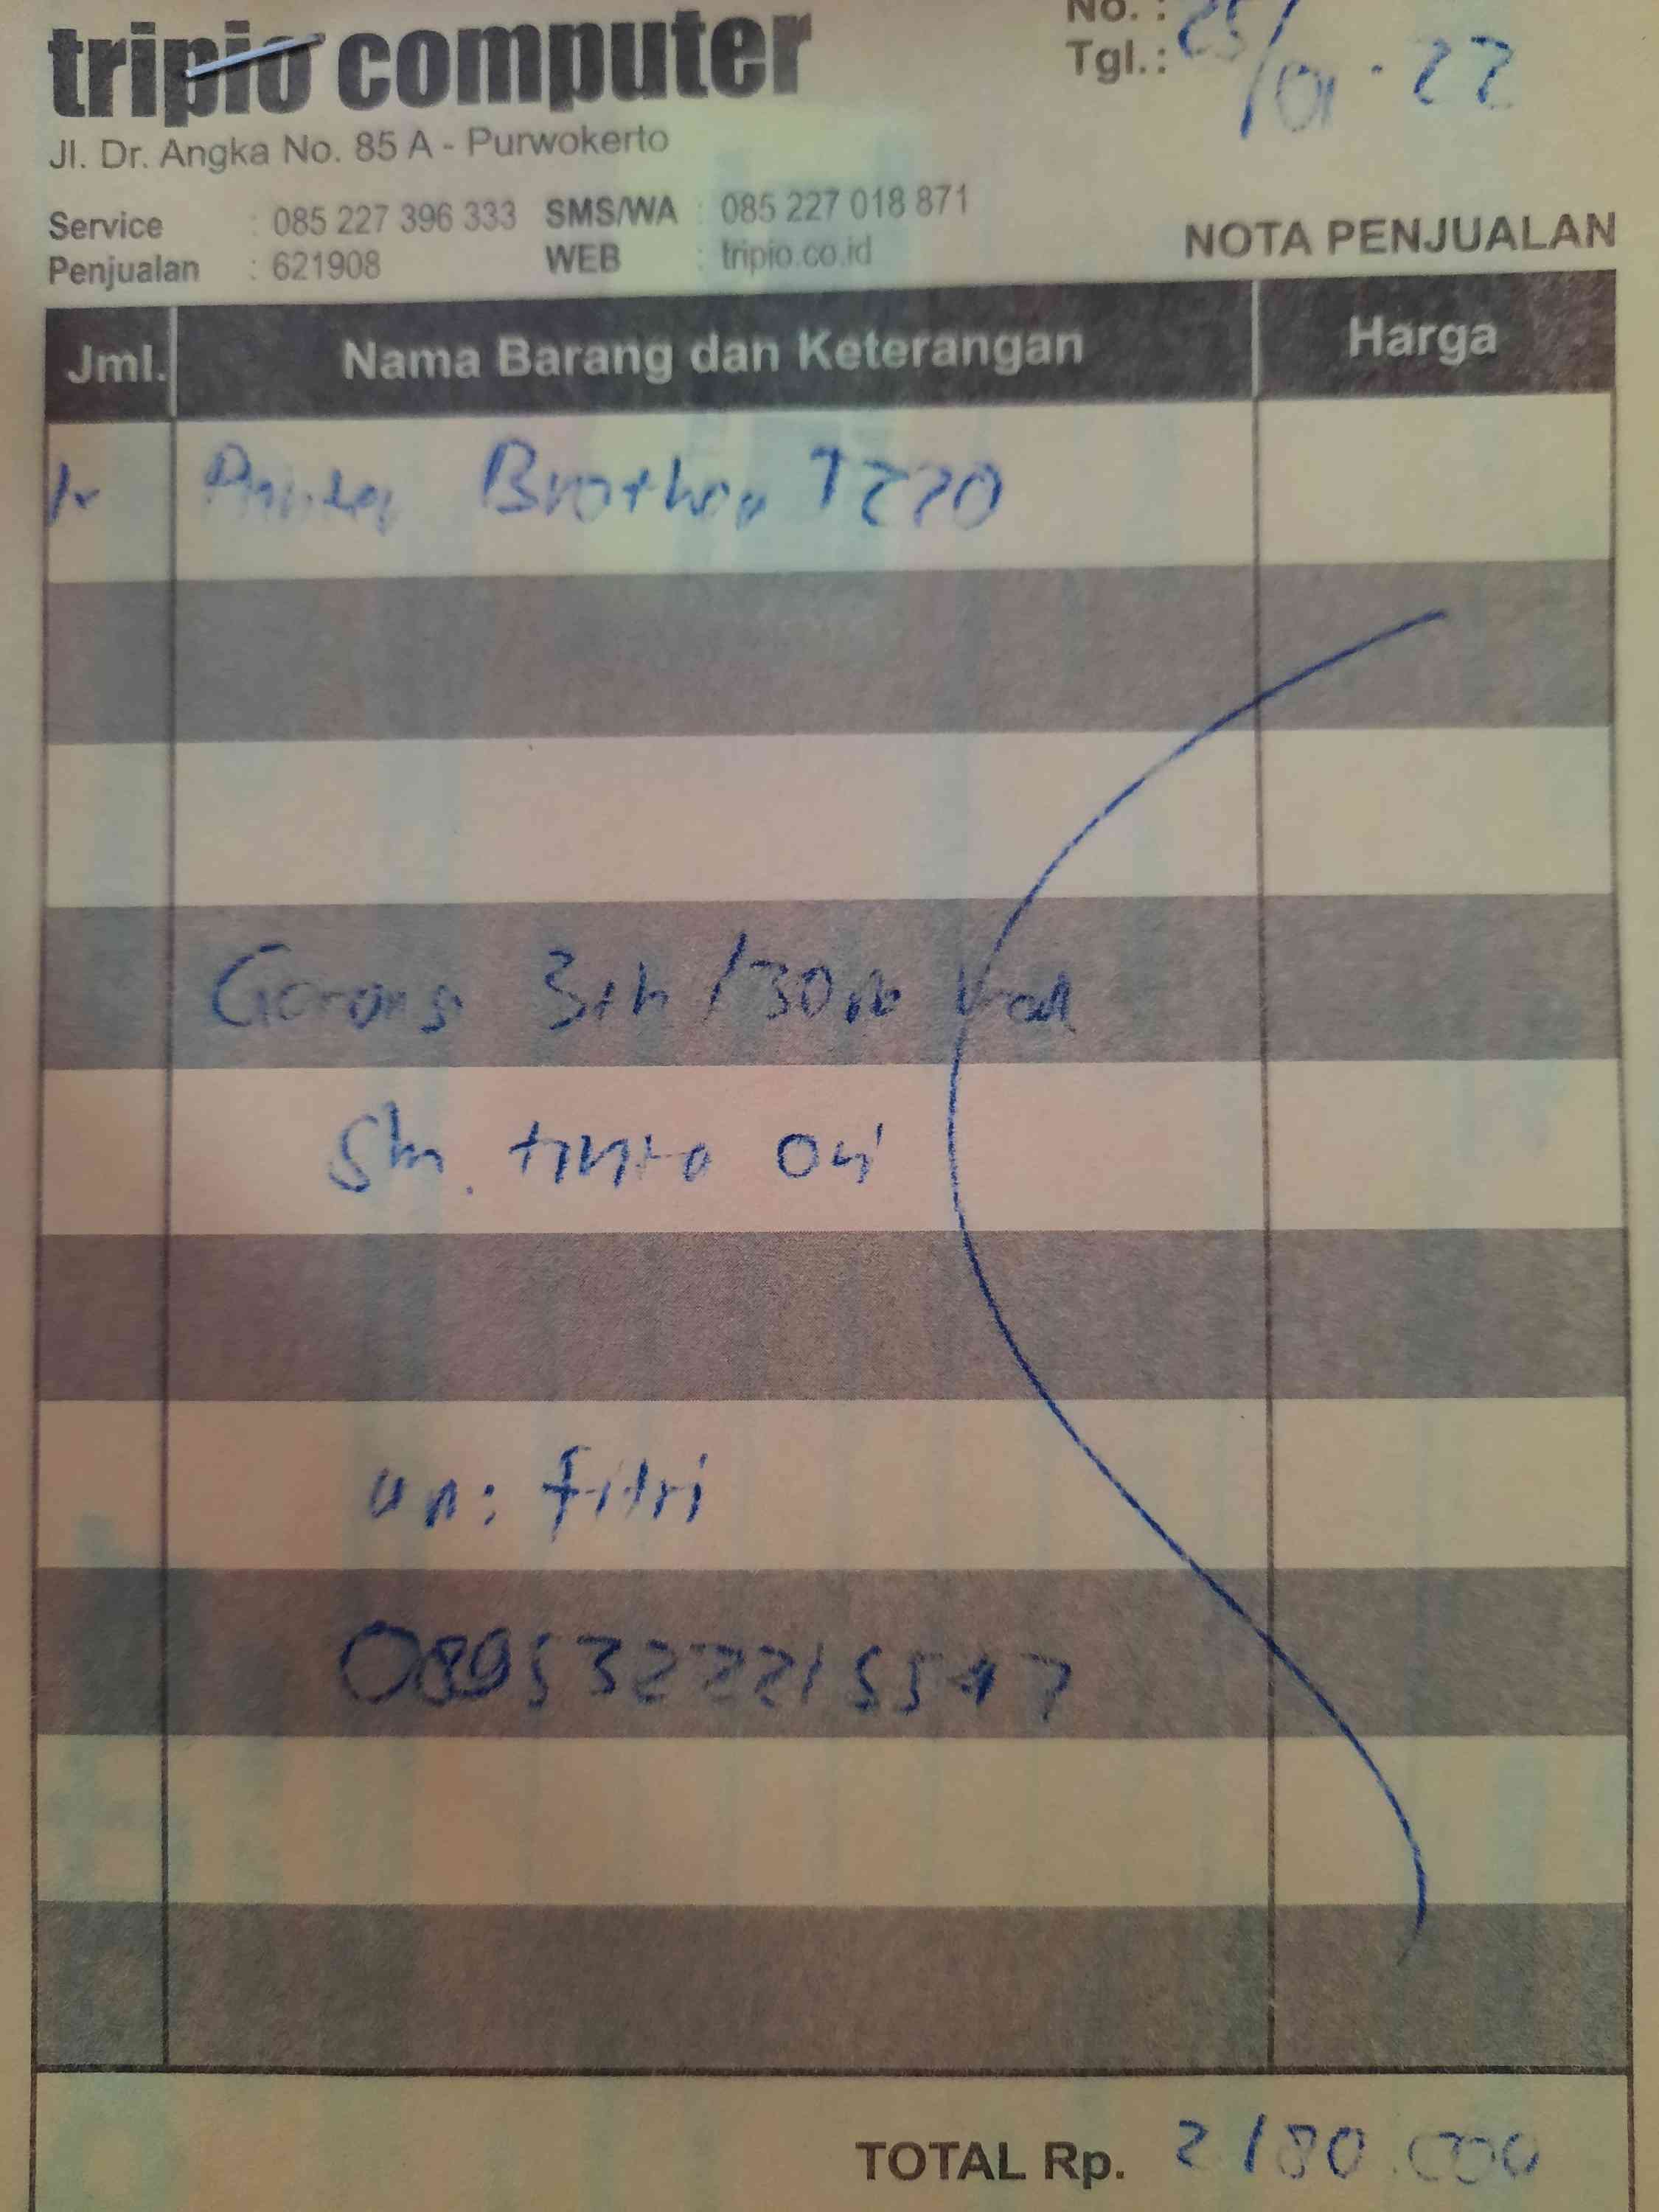 tripio computer
No. :
Tgl. : 25/01.22
Jl. Dr. Angka No. 85 A - Purwokerto
Service : 085 227 396 333 SMS/WA : 085 227 018 871
Penjualan : 621908 WEB : tripio.co.id
NOTA PENJUALAN
Jml. Nama Barang dan Keterangan Harga
1x Printer Brother T220
Garansi 3th/30rb
Sln. tinta Ori
an: fitri
0895322215547
TOTAL Rp. 2180.000